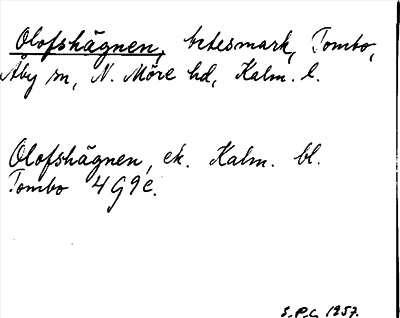 Olofshägnen, betesmark, Tombo,
Åby sn, N. Möre hd, Kalm. l.
Olofshägnen, ek. Kalm. bl.
Tombo 4G9e.
S.P.C. 1957.